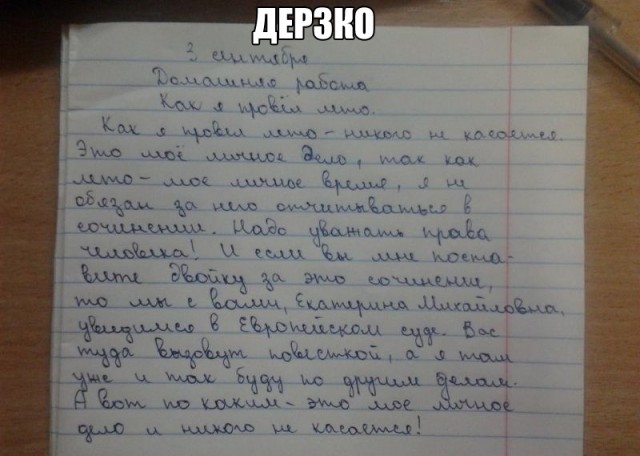 ДЕРЗКО
3 сентября
Домашняя работа
Как я провёл лето.
Как я провёл лето – никого не касается.
Это моё личное дело, так как
лето – мое личное время, я не
обязан за него отчитываться в
сочинении. Надо уважать права
человека! И если вы мне поста-
вите двойку за это сочинение,
то мы с вами, Екатерина Михайловна,
увидимся в Европейском суде. Вас
туда вызовут повесткой, а я там
уже и так буду по другим делам.
А вот по каким – это мое личное
дело и никого не касается!